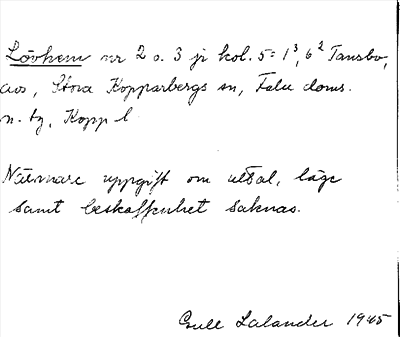 Lövhem nr 2 o. 3 jr kol. 5 = 1³, 6² Tansbo,
avs, Stora Kopparbergs sn, Falu doms.
n. tg, Kopp l
Närmare uppgift om uttal, läge
samt beskaffenhet saknas.
Gull Lalander 1945